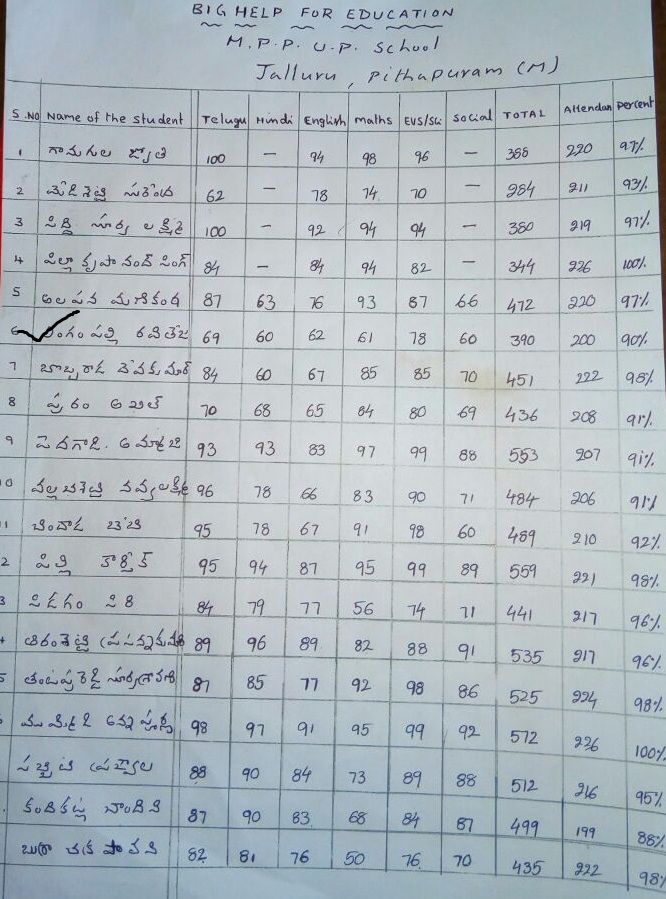 BIG HELP FOR EDUCATION
M.P.P. U.P. School
Jalluru, Pithapuram (M)
S.NO Name of the student Telugu Hindi English maths EVS/Sci Social TOTAL Attendan percent
1 గామగల జ్యోతి 100 — 94 98 96 — 388 220 97%
2 62 — 78 74 70 — 284 211 93%
3 సూర్య లక్ష్మి 100 — 92 94 94 — 380 219 97%
4 పిల్లా కృపానంద్ సింగ్ 84 — 84 94 82 — 344 226 100%
5 మణికంఠ 87 63 76 93 87 66 472 220 97%
6 రవితేజ 69 60 62 61 78 60 390 200 90%
7 దేవకుమార్ 84 60 67 85 85 70 451 222 98%
8 అఖిల్ 70 68 65 84 80 69 436 208 91%
9 93 93 83 97 99 88 553 207 91%
10 నవ్యలక్ష్మి 96 78 66 83 90 71 484 206 91%
1 95 78 67 91 98 60 489 210 92%
2 పిల్లి కార్తీక్ 95 94 87 95 99 89 559 221 98%
3 పిడగం సిరి 84 79 77 56 74 71 441 217 96%
4 89 96 89 82 88 91 535 217 96%
5 87 85 77 92 98 86 525 224 98%
98 97 91 95 99 92 572 226 100%
88 90 84 73 89 88 512 216 95%
కందికట్ల చాందిని 87 90 83 68 84 87 499 199 88%
పావని 82 81 76 50 76 70 435 222 98%